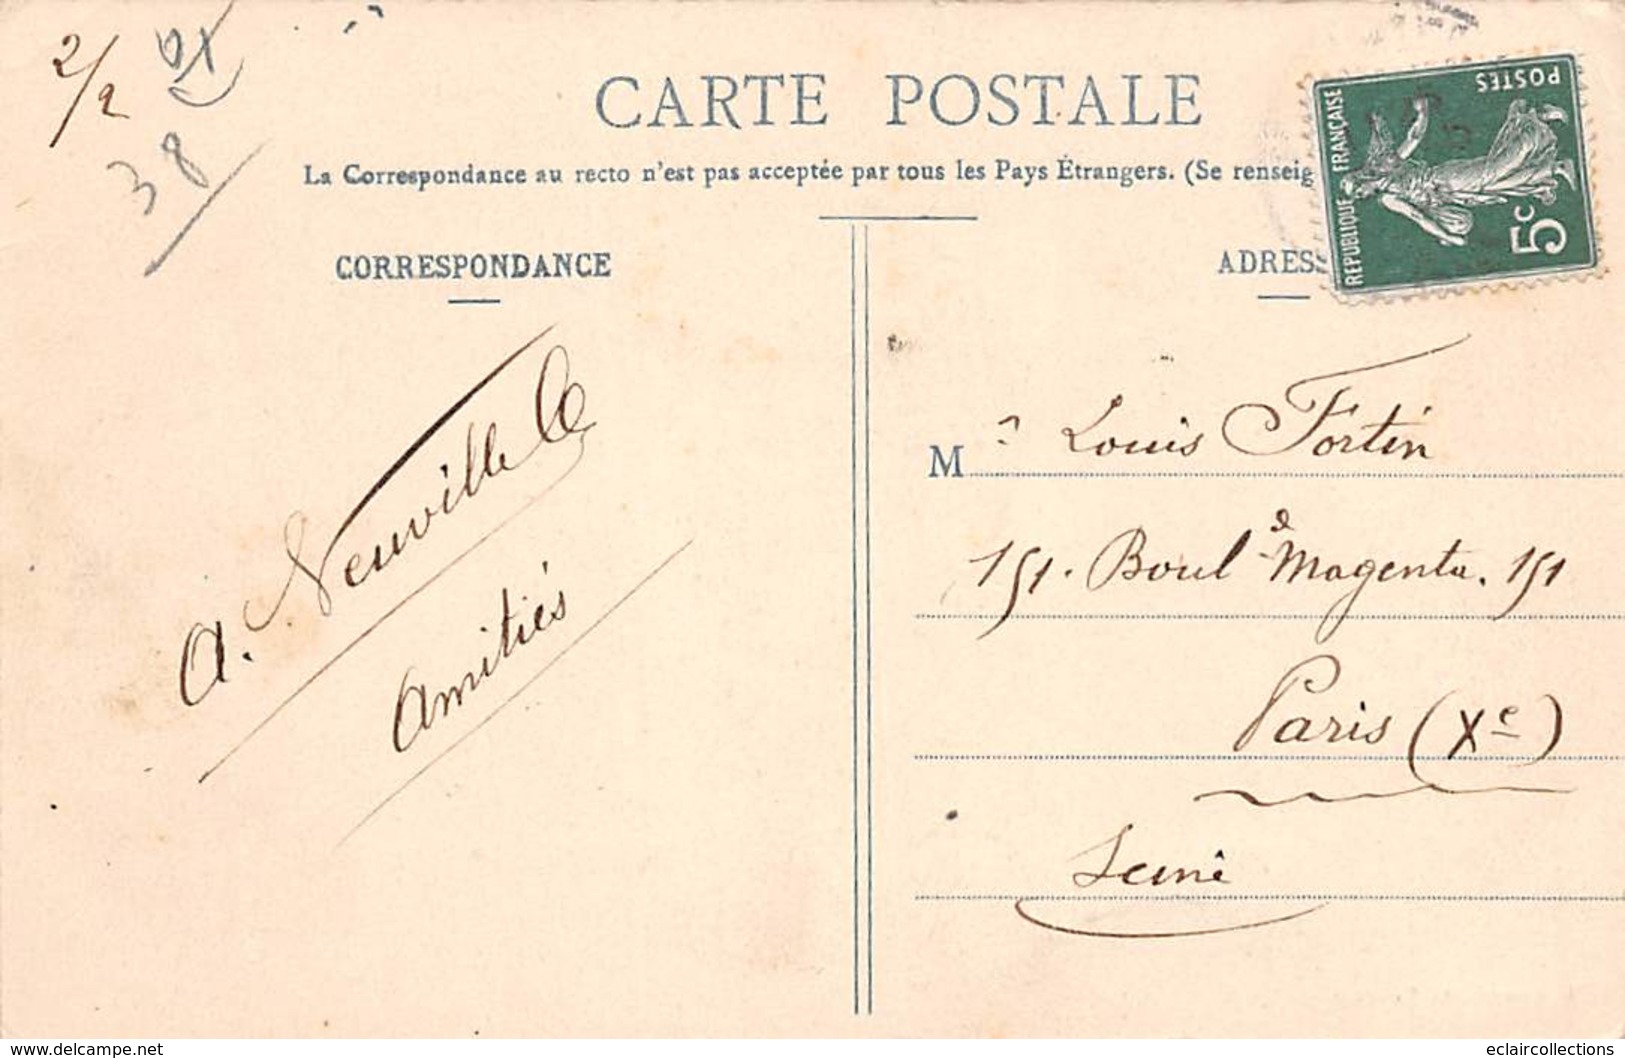 2/2
38
CARTE POSTALE
La Correspondance au recto n'est pas acceptée par tous les Pays Étrangers. (Se renseig
POSTES
REPUBLIQUE FRANÇAISE
5c
CORRESPONDANCE
ADRESS
A. Neuville
Amitiés
M r Louis Fortin
151. Boul d Magenta. 151
Paris (Xe)
Seine
www.delcampe.net
eclaircollections